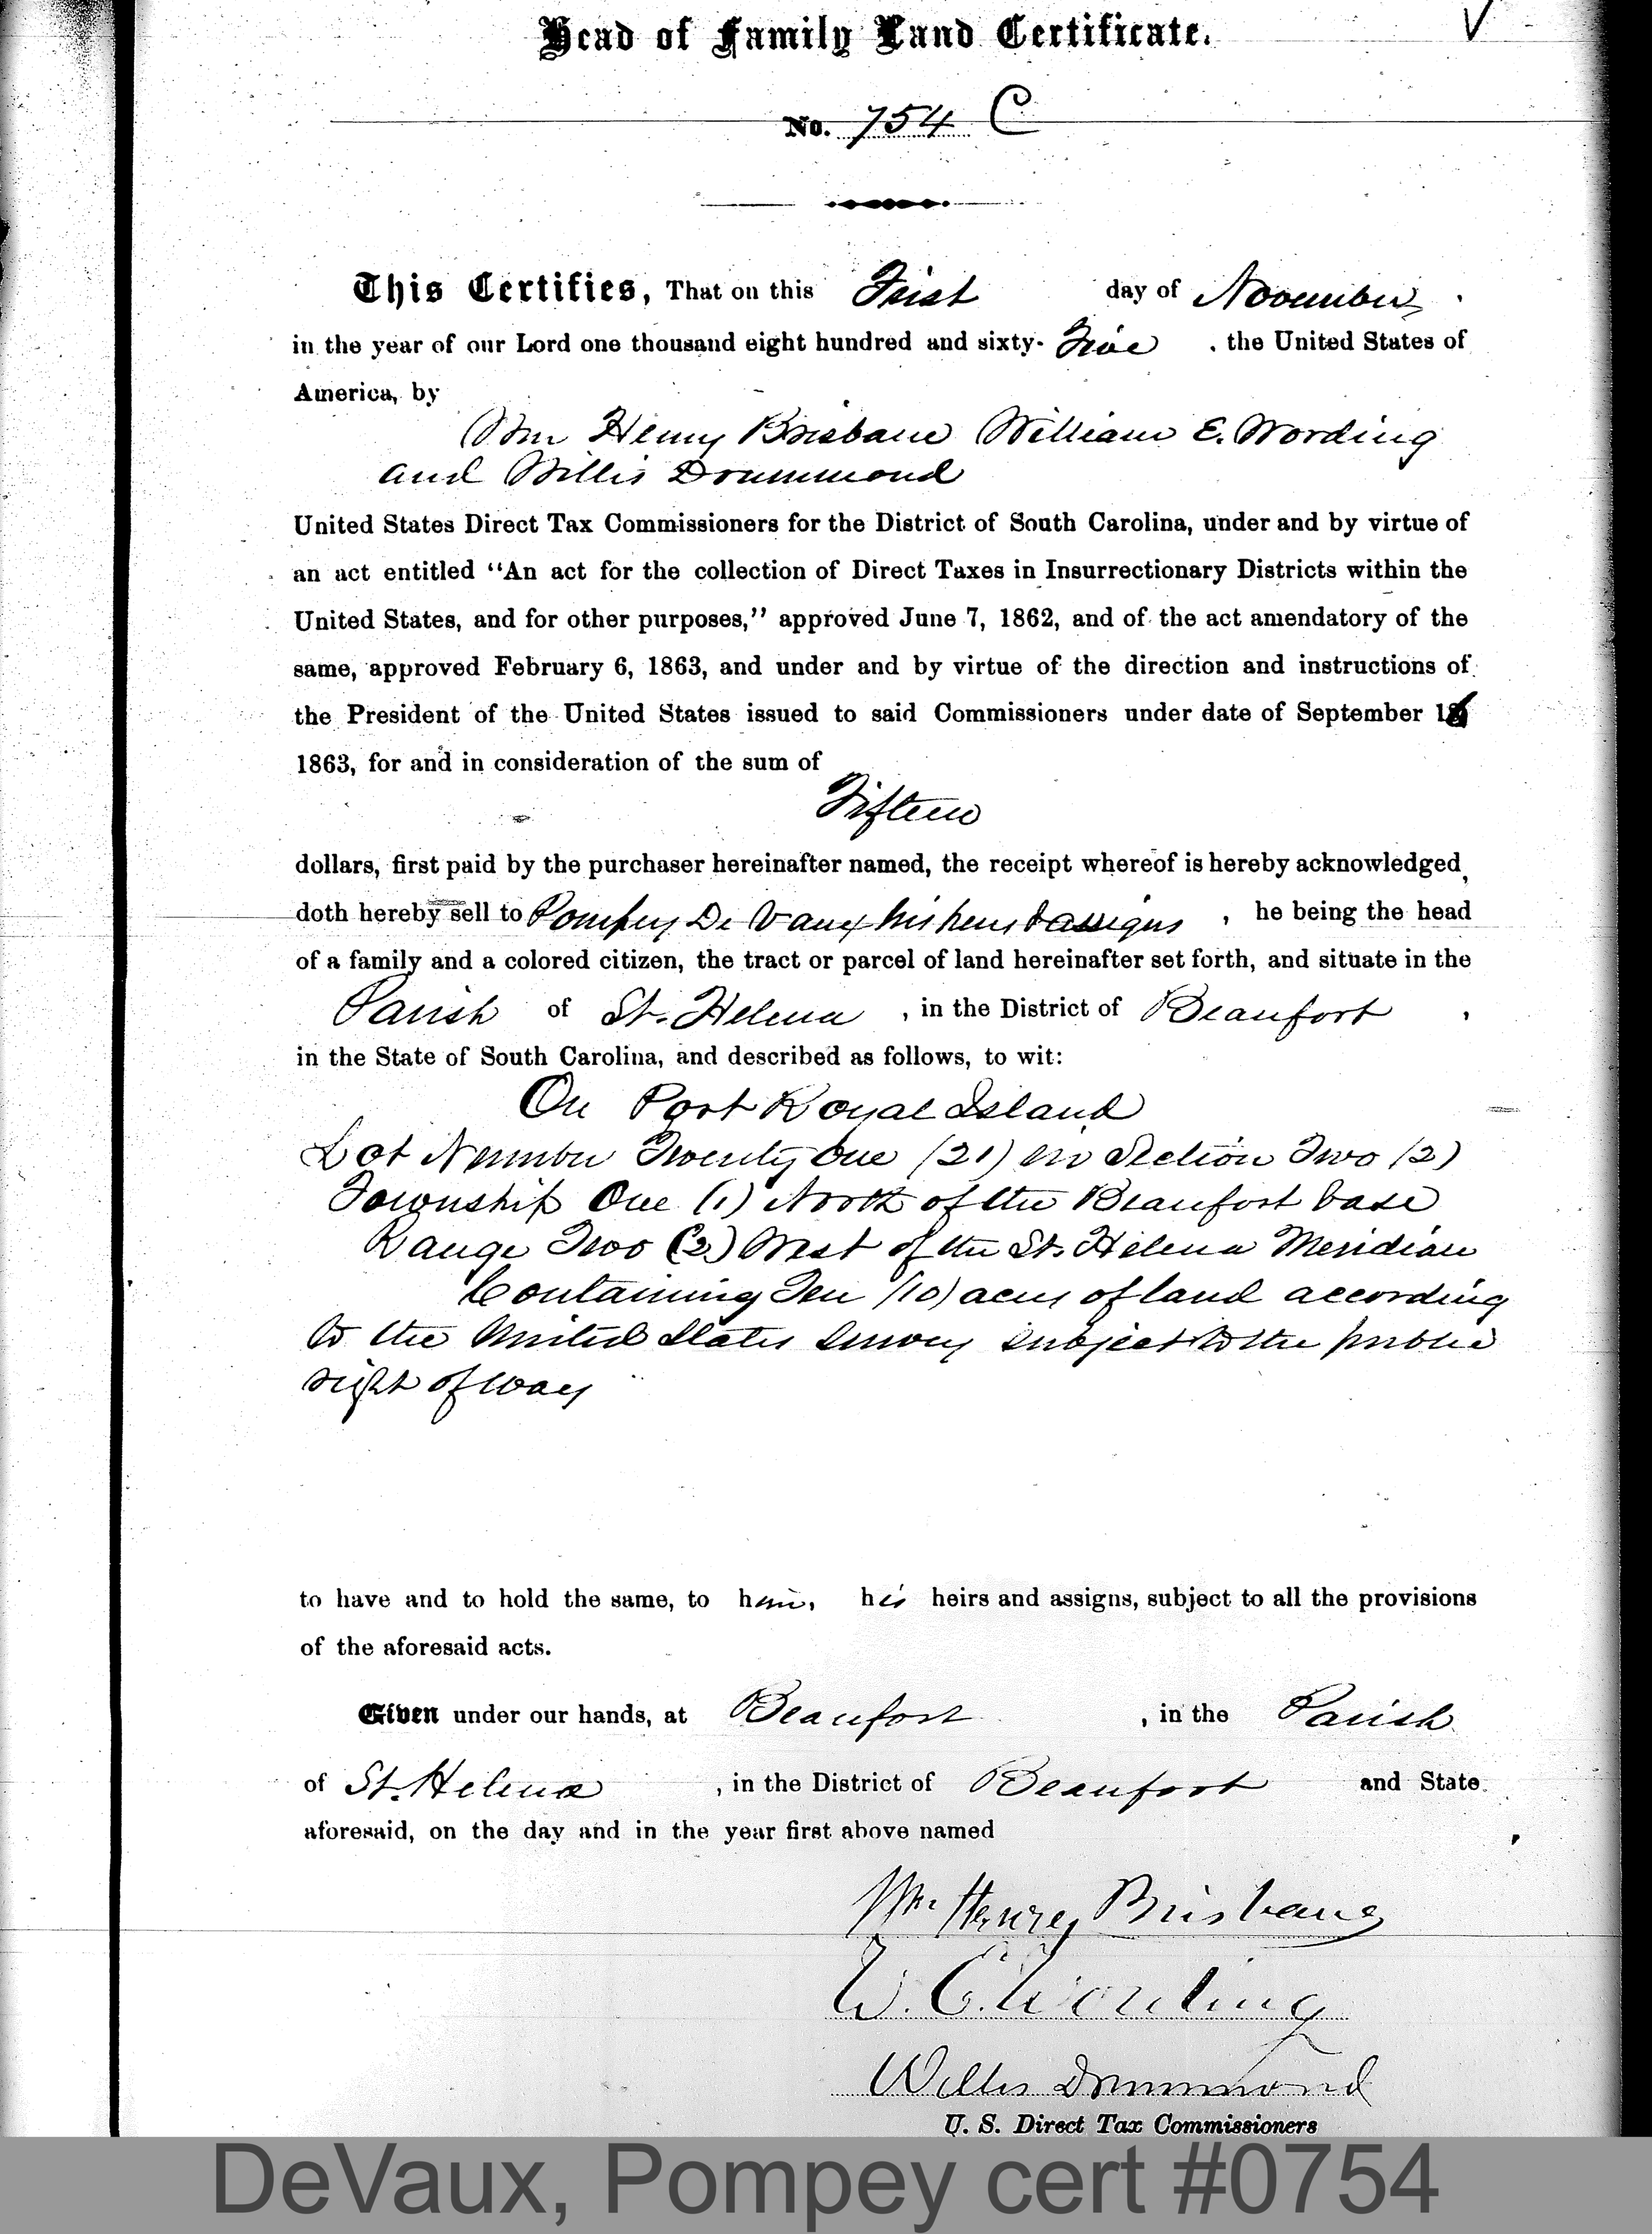 Head of Family Land Certificate.
No. 754 C
This Certifies, That on this First day of November,
in the year of our Lord one thousand eight hundred and sixty-Five, the United States of
America, by
Wm Henry Brisbane William E. Wording
and Willis Drummond
United States Direct Tax Commissioners for the District of South Carolina, under and by virtue of
an act entitled "An act for the collection of Direct Taxes in Insurrectionary Districts within the
United States, and for other purposes," approved June 7, 1862, and of the act amendatory of the
same, approved February 6, 1863, and under and by virtue of the direction and instructions of
the President of the United States issued to said Commissioners under date of September 16
1863, for and in consideration of the sum of
Fifteen
dollars, first paid by the purchaser hereinafter named, the receipt whereof is hereby acknowledged,
doth hereby sell to Pompey De Vaux his heirs & assigns, he being the head
of a family and a colored citizen, the tract or parcel of land hereinafter set forth, and situate in the
Parish of St. Helena, in the District of Beaufort,
in the State of South Carolina, and described as follows, to wit:
On Port Royal Island
Lot Number Twenty One (21) in Section Two (2)
Township One (1) North of the Beaufort base
Range Two (2) West of the St. Helena Meridian
Containing Ten (10) acres of land according
to the United States Survey subject to the public
right of way
to have and to hold the same, to him, his heirs and assigns, subject to all the provisions
of the aforesaid acts.
Given under our hands, at Beaufort, in the Parish
of St. Helena, in the District of Beaufort and State
aforesaid, on the day and in the year first above named
Wm Henry Brisbane
W. E. Wording
Willis Drummond
U. S. Direct Tax Commissioners
DeVaux, Pompey cert #0754